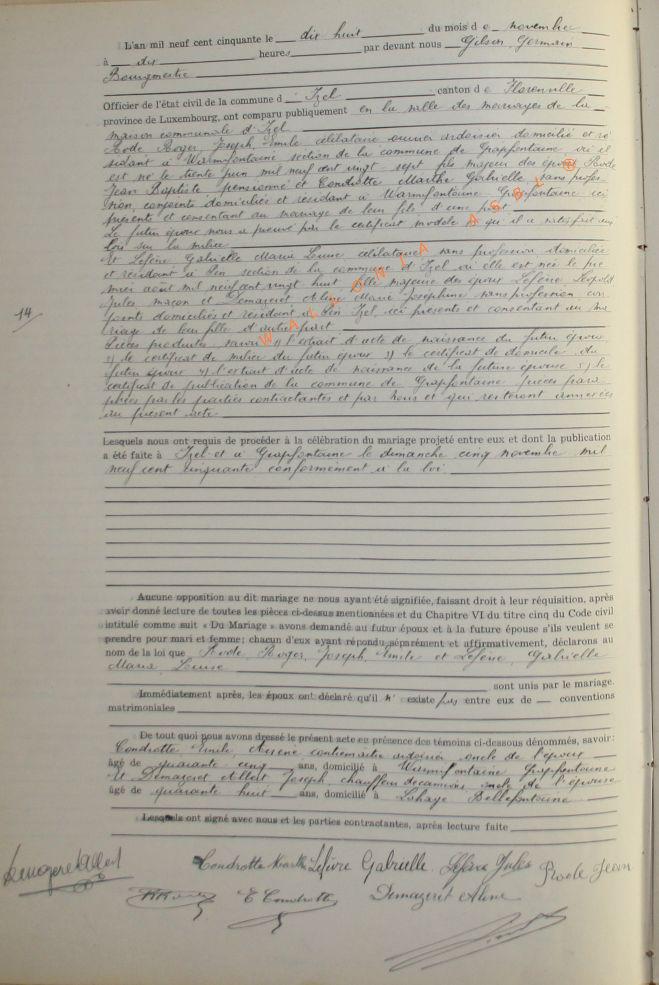 L'an mil neuf cent cinquante le dix huit du mois de novembre
à dix heures par devant nous Gilson, Germain
Bourgmestre
Officier de l'état civil de la commune d' Izel canton de Florenville
province de Luxembourg, ont comparu publiquement en la salle des mariages de la
maison communale d'Izel
Rode Roger, Joseph, Emile célibataire ouvrier ardoisier domicilié et ré
sidant à Warmifontaine section de la commune de Grapfontaine où il
est né le trente juin mil neuf cent vingt-sept fils majeur des époux Rode
Jean Baptiste pensionné et Condrotte Marthe Gabrielle sans profes
sion, conjoints domiciliés et résidant à Warmifontaine Grapfontaine ici
présents et consentant au mariage de leur fils d'une part
Le futur époux nous a prouvé par le certificat modèle qu'il a satisfait aux
lois sur la milice
Et Lefèvre Gabrielle Marie Louise célibataire sans profession domiciliée
et résidant à Pin section de la commune d'Izel où elle est née le pre
mier août mil neuf cent vingt huit fille majeure des époux Lefèvre Léopold
Jules maçon et Demazeret Aline Marie Joséphine sans profession con
joints domiciliés et résidant à Pin Izel, ici présents et consentant au ma
riage de leur fille d'autre part
Pièces produites savoir 1) l'extrait d'acte de naissance du futur époux
2) le certificat de milice du futur époux 3) le certificat de domicile du
futur époux 4) l'extrait d'acte de naissance de la future épouse 5) le
certificat de publication de la commune de Grapfontaine pièces para
phées par les parties contractantes et par nous et qui resteront annexées
au présent acte
14
WALLONIA ASBL ®
Lesquels nous ont requis de procéder à la célébration du mariage projeté entre eux et dont la publication
a été faite à Izel et à Grapfontaine le dimanche cinq novembre mil
neuf cent cinquante conformément à la loi
Aucune opposition au dit mariage ne nous ayant été signifiée, faisant droit à leur réquisition, après
avoir donné lecture de toutes les pièces ci-dessus mentionnées et du Chapitre VI du titre cinq du Code civil
intitulé comme suit « Du Mariage » avons demandé au futur époux et à la future épouse s'ils veulent se
prendre pour mari et femme; chacun d'eux ayant répondu séparément et affirmativement, déclarons au
nom de la loi que Rode, Roger, Joseph, Emile et Lefèvre, Gabrielle
Marie, Louise
sont unis par le mariage.
Immédiatement après, les époux ont déclaré qu'il n' existe pas entre eux de conventions
matrimoniales
De tout quoi nous avons dressé le présent acte en présence des témoins ci-dessous dénommés, savoir:
Condrotte Emile, Arsène contremaître ardoisier oncle de l'époux
âgé de quarante cinq ans, domicilié à Warmifontaine Grapfontaine
Et Demazeret Albert Joseph, chauffeur de camions oncle de l'épouse
âgé de quarante huit ans, domicilié à Lahage Bellefontaine
Lesquels ont signé avec nous et les parties contractantes, après lecture faite
Demazeret Albert
Condrotte Marthe Lefèvre Gabrielle Lefèvre Jules Rode Jean
E Condrotte Demazeret Aline